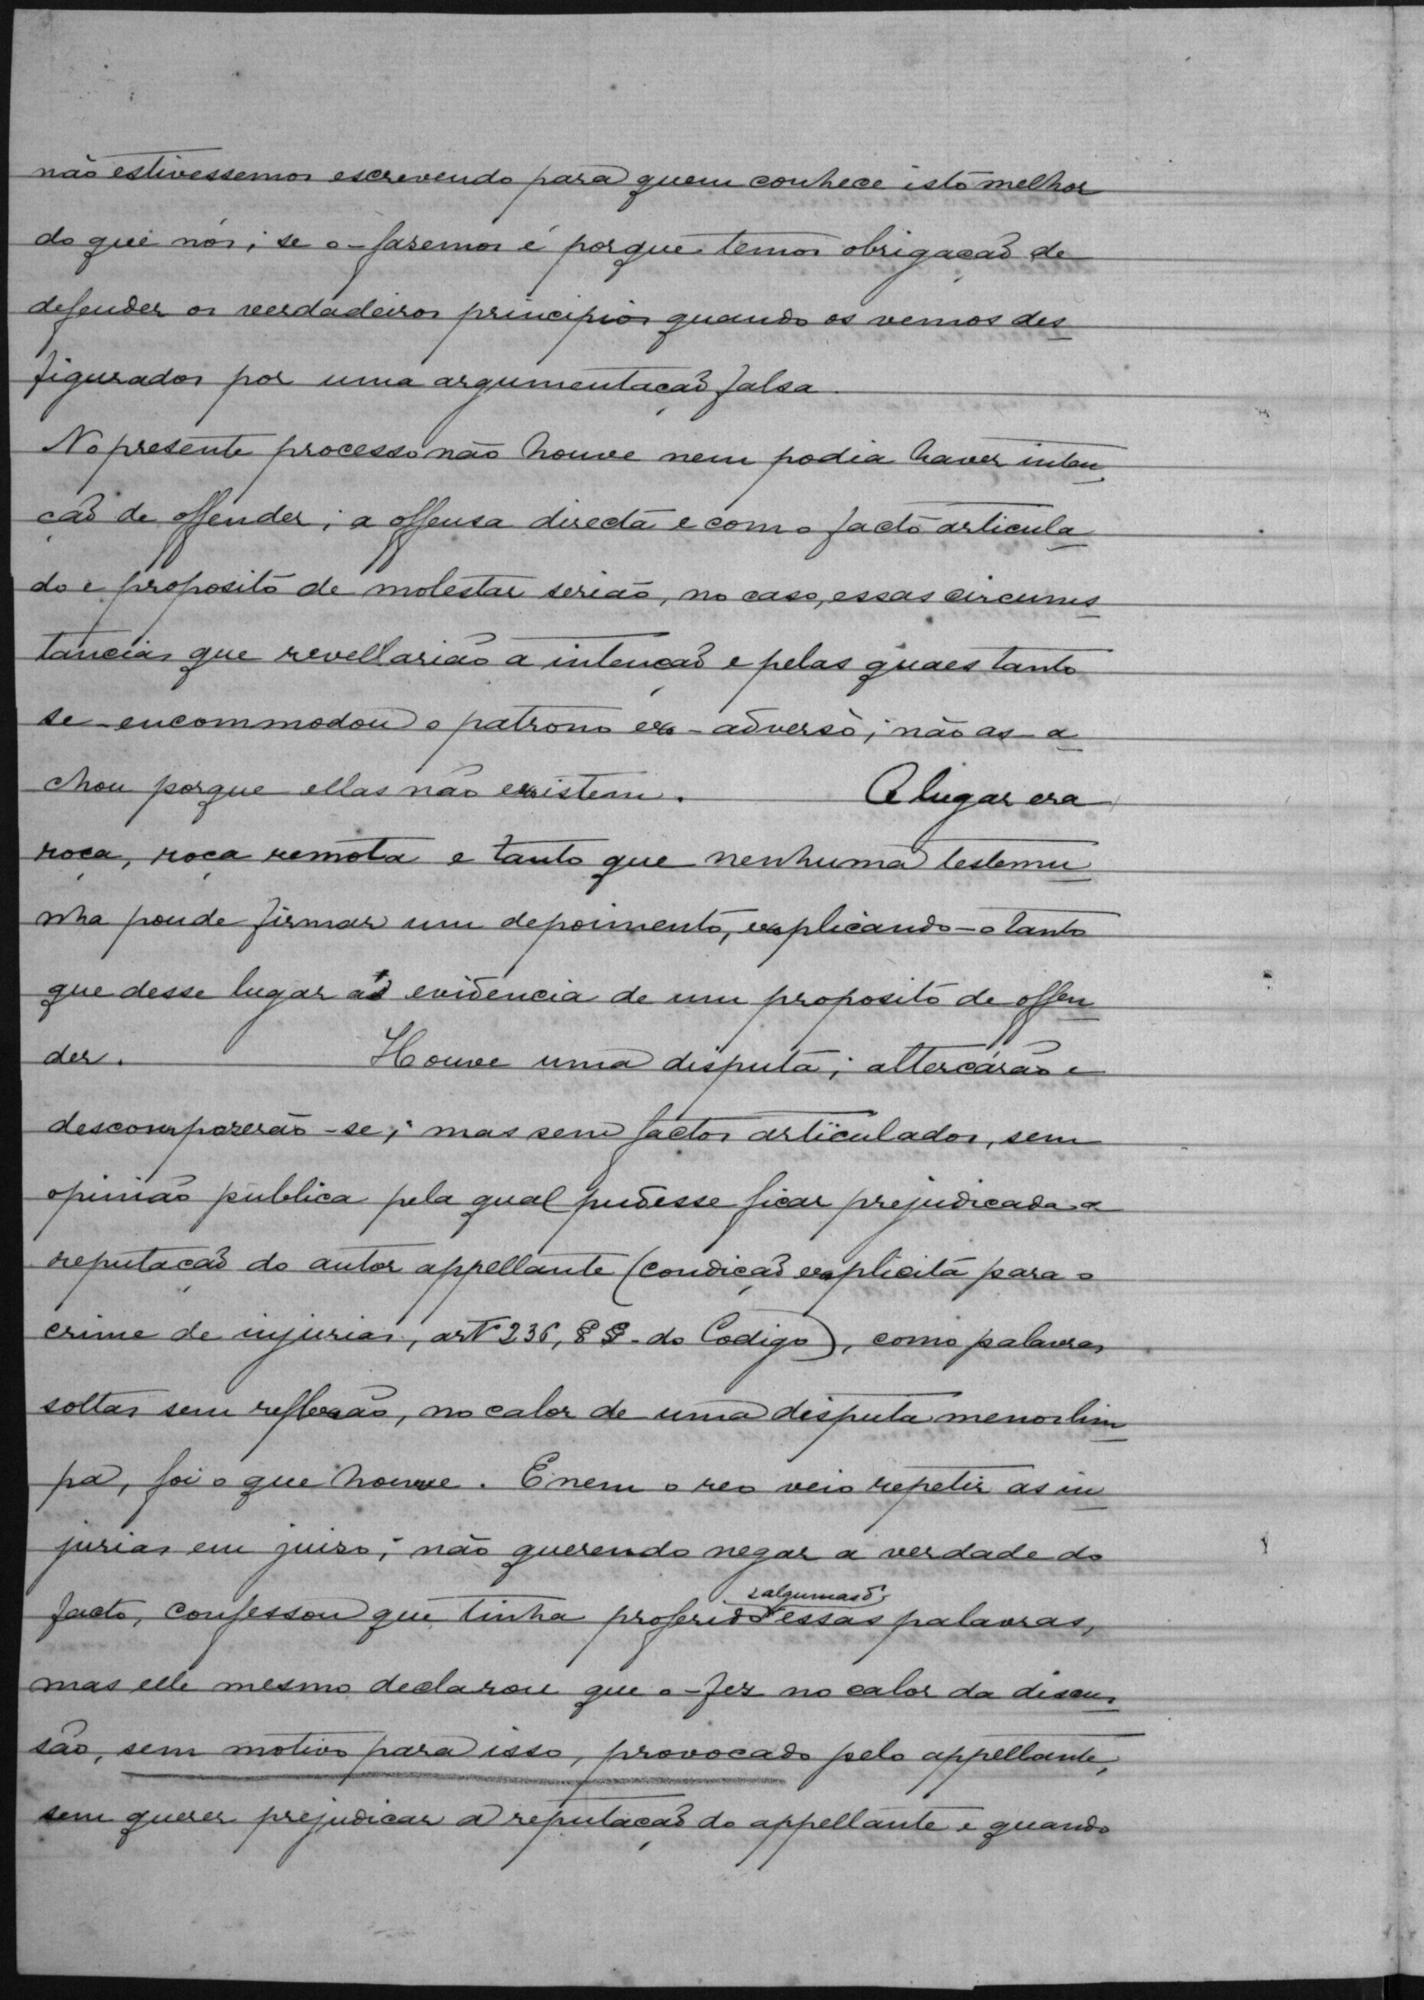 não estivessemos escrevendo para quem conhece isto melhor
do que nós; se o-fasemos é porque temos obrigação de
defender os verdadeiros principios quando os vemos des
figurados por uma argumentação falsa.
No presente processo não houve nem podia haver inten
ção de offender; a offensa directa e como facto articula
do e proposito de molestar serião, no caso, essas circums
tancias que revellarião a intenção e pelas quaes tanto
se-encommodou o patrono ex-adverso; não as-a
chou porque ellas não existem. O lugar era
roça, roça remota e tanto que nenhuma testemu
nha poude firmar um depoimento, explicando-o tanto
que desse lugar á evidencia de um proposito de offen
der. Houve uma disputa; altercárão e
descomposerão-se; mas sem factos articulados, sem
opinião publica pela qual pudesse ficar prejudicada a
reputação do autor appellante (condição explicita para o
crime de injurias, artº 236, §§ do Codigo), como palavras
soltas sem reflexão, no calor de uma disputa menos lim
pa, foi o que houve. E nem o reo veio repetir as in
jurias em juiso; não querendo negar a verdade do
algumas d'
facto, confessou que tinha proferido essas palavras,
mas elle mesmo declarou que o-fez no calor da discus
são, sem motivo para isso, provocado pelo appellante,
sem querer prejudicar a reputação do appellante e quando